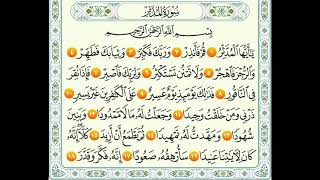 سُورَةُ الْمُدَّثِّرِ
بِسْمِ اللَّهِ الرَّحْمَٰنِ الرَّحِيمِ
يَٰٓأَيُّهَا ٱلْمُدَّثِّرُ ١ قُمْ فَأَنذِرْ ٢ وَرَبَّكَ فَكَبِّرْ ٣ وَثِيَابَكَ فَطَهِّرْ ٤
وَٱلرُّجْزَ فَٱهْجُرْ ٥ وَلَا تَمْنُن تَسْتَكْثِرُ ٦ وَلِرَبِّكَ فَٱصْبِرْ ٧ فَإِذَا نُقِرَ
فِى ٱلنَّاقُورِ ٨ فَذَٰلِكَ يَوْمَئِذٍ يَوْمٌ عَسِيرٌ ٩ عَلَى ٱلْكَٰفِرِينَ غَيْرُ يَسِيرٍ ١٠
ذَرْنِى وَمَنْ خَلَقْتُ وَحِيدًا ١١ وَجَعَلْتُ لَهُۥ مَالًا مَّمْدُودًا ١٢ وَبَنِينَ
شُهُودًا ١٣ وَمَهَّدتُّ لَهُۥ تَمْهِيدًا ١٤ ثُمَّ يَطْمَعُ أَنْ أَزِيدَ ١٥ كَلَّآ إِنَّهُۥ
كَانَ لِءَايَٰتِنَا عَنِيدًا ١٦ سَأُرْهِقُهُۥ صَعُودًا ١٧ إِنَّهُۥ فَكَّرَ وَقَدَّرَ ١٨